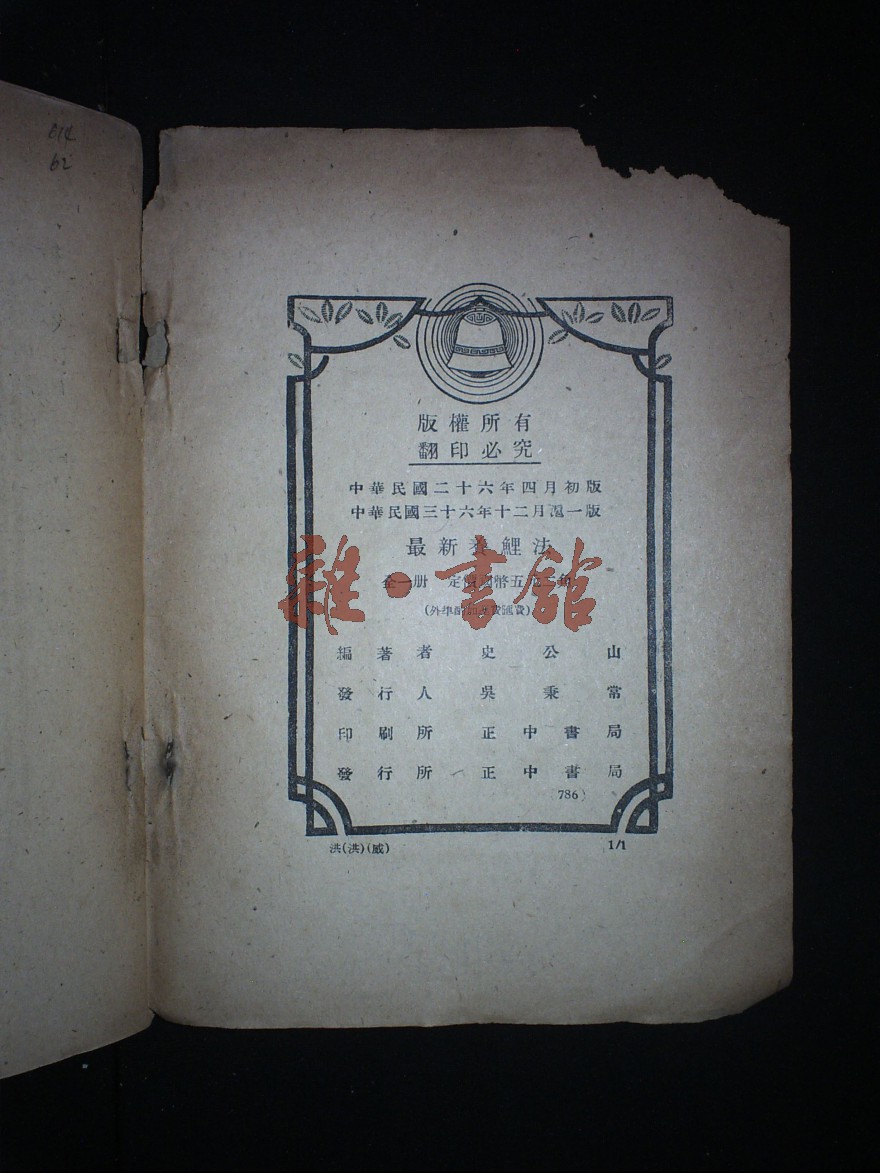 62
版權所有
翻印必究
中華民國二十六年四月初版
中華民國三十六年十二月滬一版
最新養鯉法
全一册 定價國幣五元二角
(外埠酌加運費滙費)
雜·書館
編著者 史公山
發行人 吳秉常
印刷所 正中書局
發行所 正中書局
(786)
洪(洪)(威) 1/1